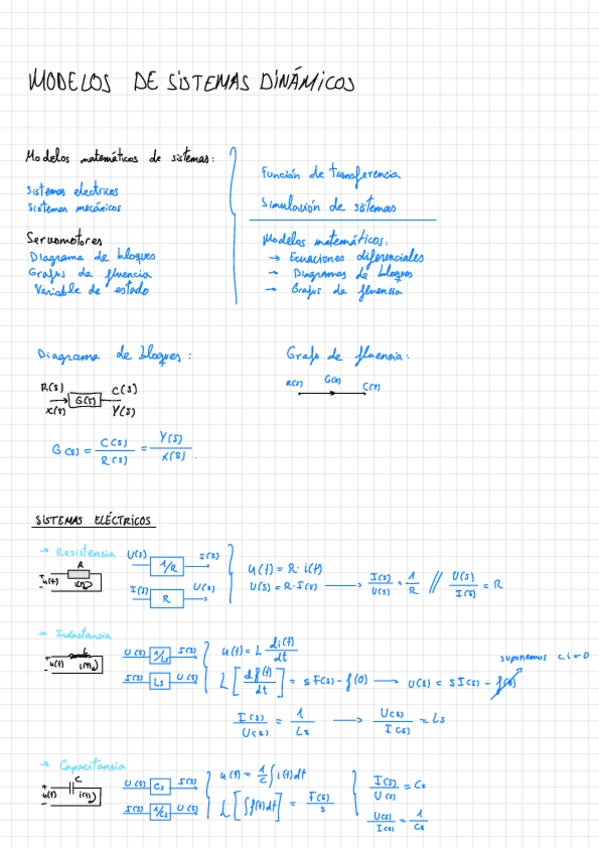 MODELOS DE SISTEMAS DINÁMICOS
Modelos matemáticos de sistemas:
Sistemas electricos
Sistemas mecánicos
Servomotores
Diagrama de bloques
Grafos de fluencia
Variable de estado
Función de transferencia
Simulación de sistemas
Modelos matemáticos:
→ Ecuaciones diferenciales
→ Diagramas de bloques
→ Grafos de fluencia
Diagrama de bloques:
R(s) G(s) C(s)
X(s) Y(s)
G(s) = C(s)/R(s) = Y(s)/X(s).
Grafo de fluencia:
R(s) G(s) C(s)
SISTEMAS ELÉCTRICOS
→ Resistencia
R
u(t) i(t)
U(s) 1/R I(s)
I(s) R U(s)
u(t) = R· i(t)
U(s) = R· I(s) → I(s)/U(s) = 1/R // U(s)/I(s) = R
→ Inductancia
L
u(t) i(t)
U(s) 1/Ls I(s)
I(s) Ls U(s)
u(t) = L di(t)/dt
suponemos c.i=0
L[df(t)/dt] = sF(s) - f(0) → U(s) = sI(s) - f(0)
I(s)/U(s) = 1/Ls → U(s)/I(s) = Ls
→ Capacitancia
C
u(t) i(t)
U(s) Cs I(s)
I(s) 1/Cs U(s)
u(t) = 1/C ∫i(t)dt
L[∫f(t)dt] = F(s)/s
I(s)/U(s) = Cs
U(s)/I(s) = 1/Cs